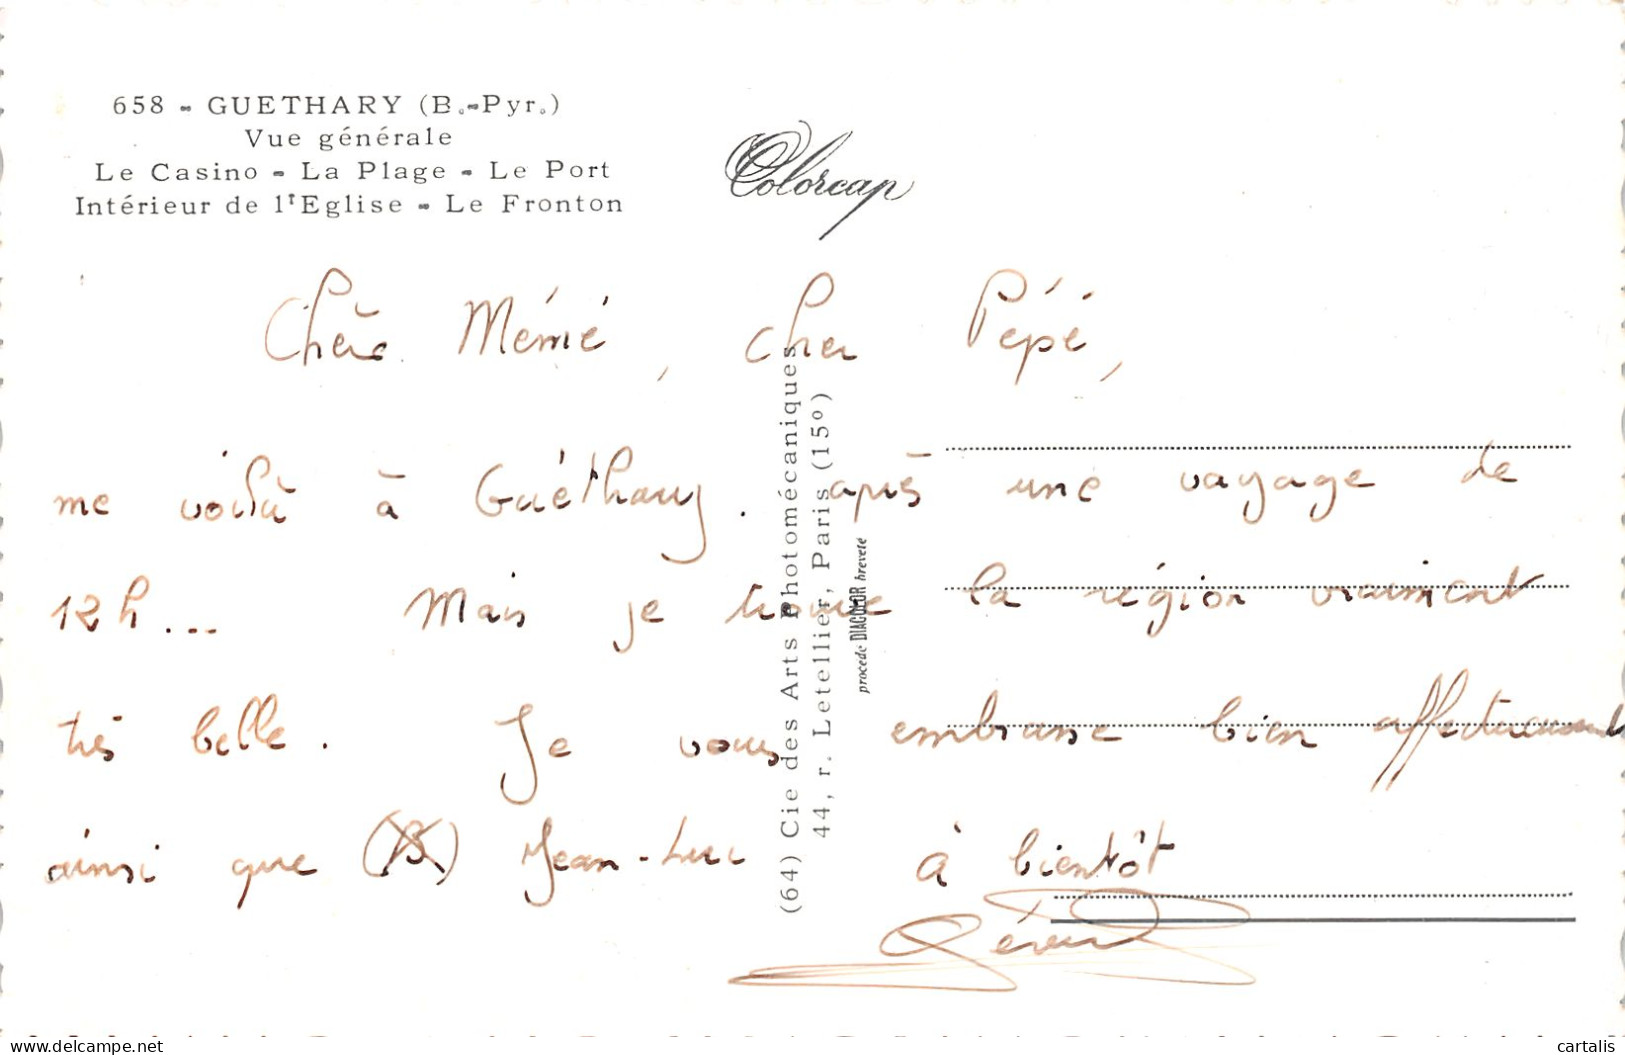 658 - GUETHARY (B.-Pyr.)
Vue générale
Le Casino - La Plage - Le Port
Intérieur de l'Eglise - Le Fronton
Colorcap
Chère Mémé, cher Pépé,
me voilà à Guéthary. après une voyage de
12 h... Mais je trouve la région vraiment
très belle. Je vous embrasse bien affectueusement
ainsi que (B) Jean-Luc à bientôt
Gérard
(64) Cie des Arts Photomécaniques
44, r. Letellier, Paris (15º)
procédé DIACOLOR breveté
www.delcampe.net
cartalis